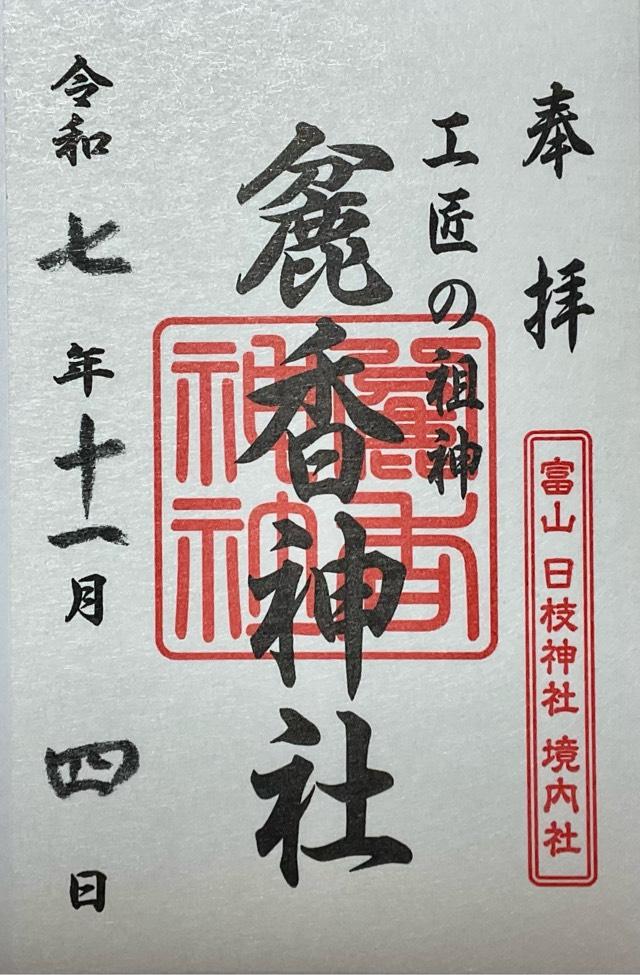 奉拝
富山 日枝神社 境内社
工匠の祖神
麁香神社
令和七年十一月四日